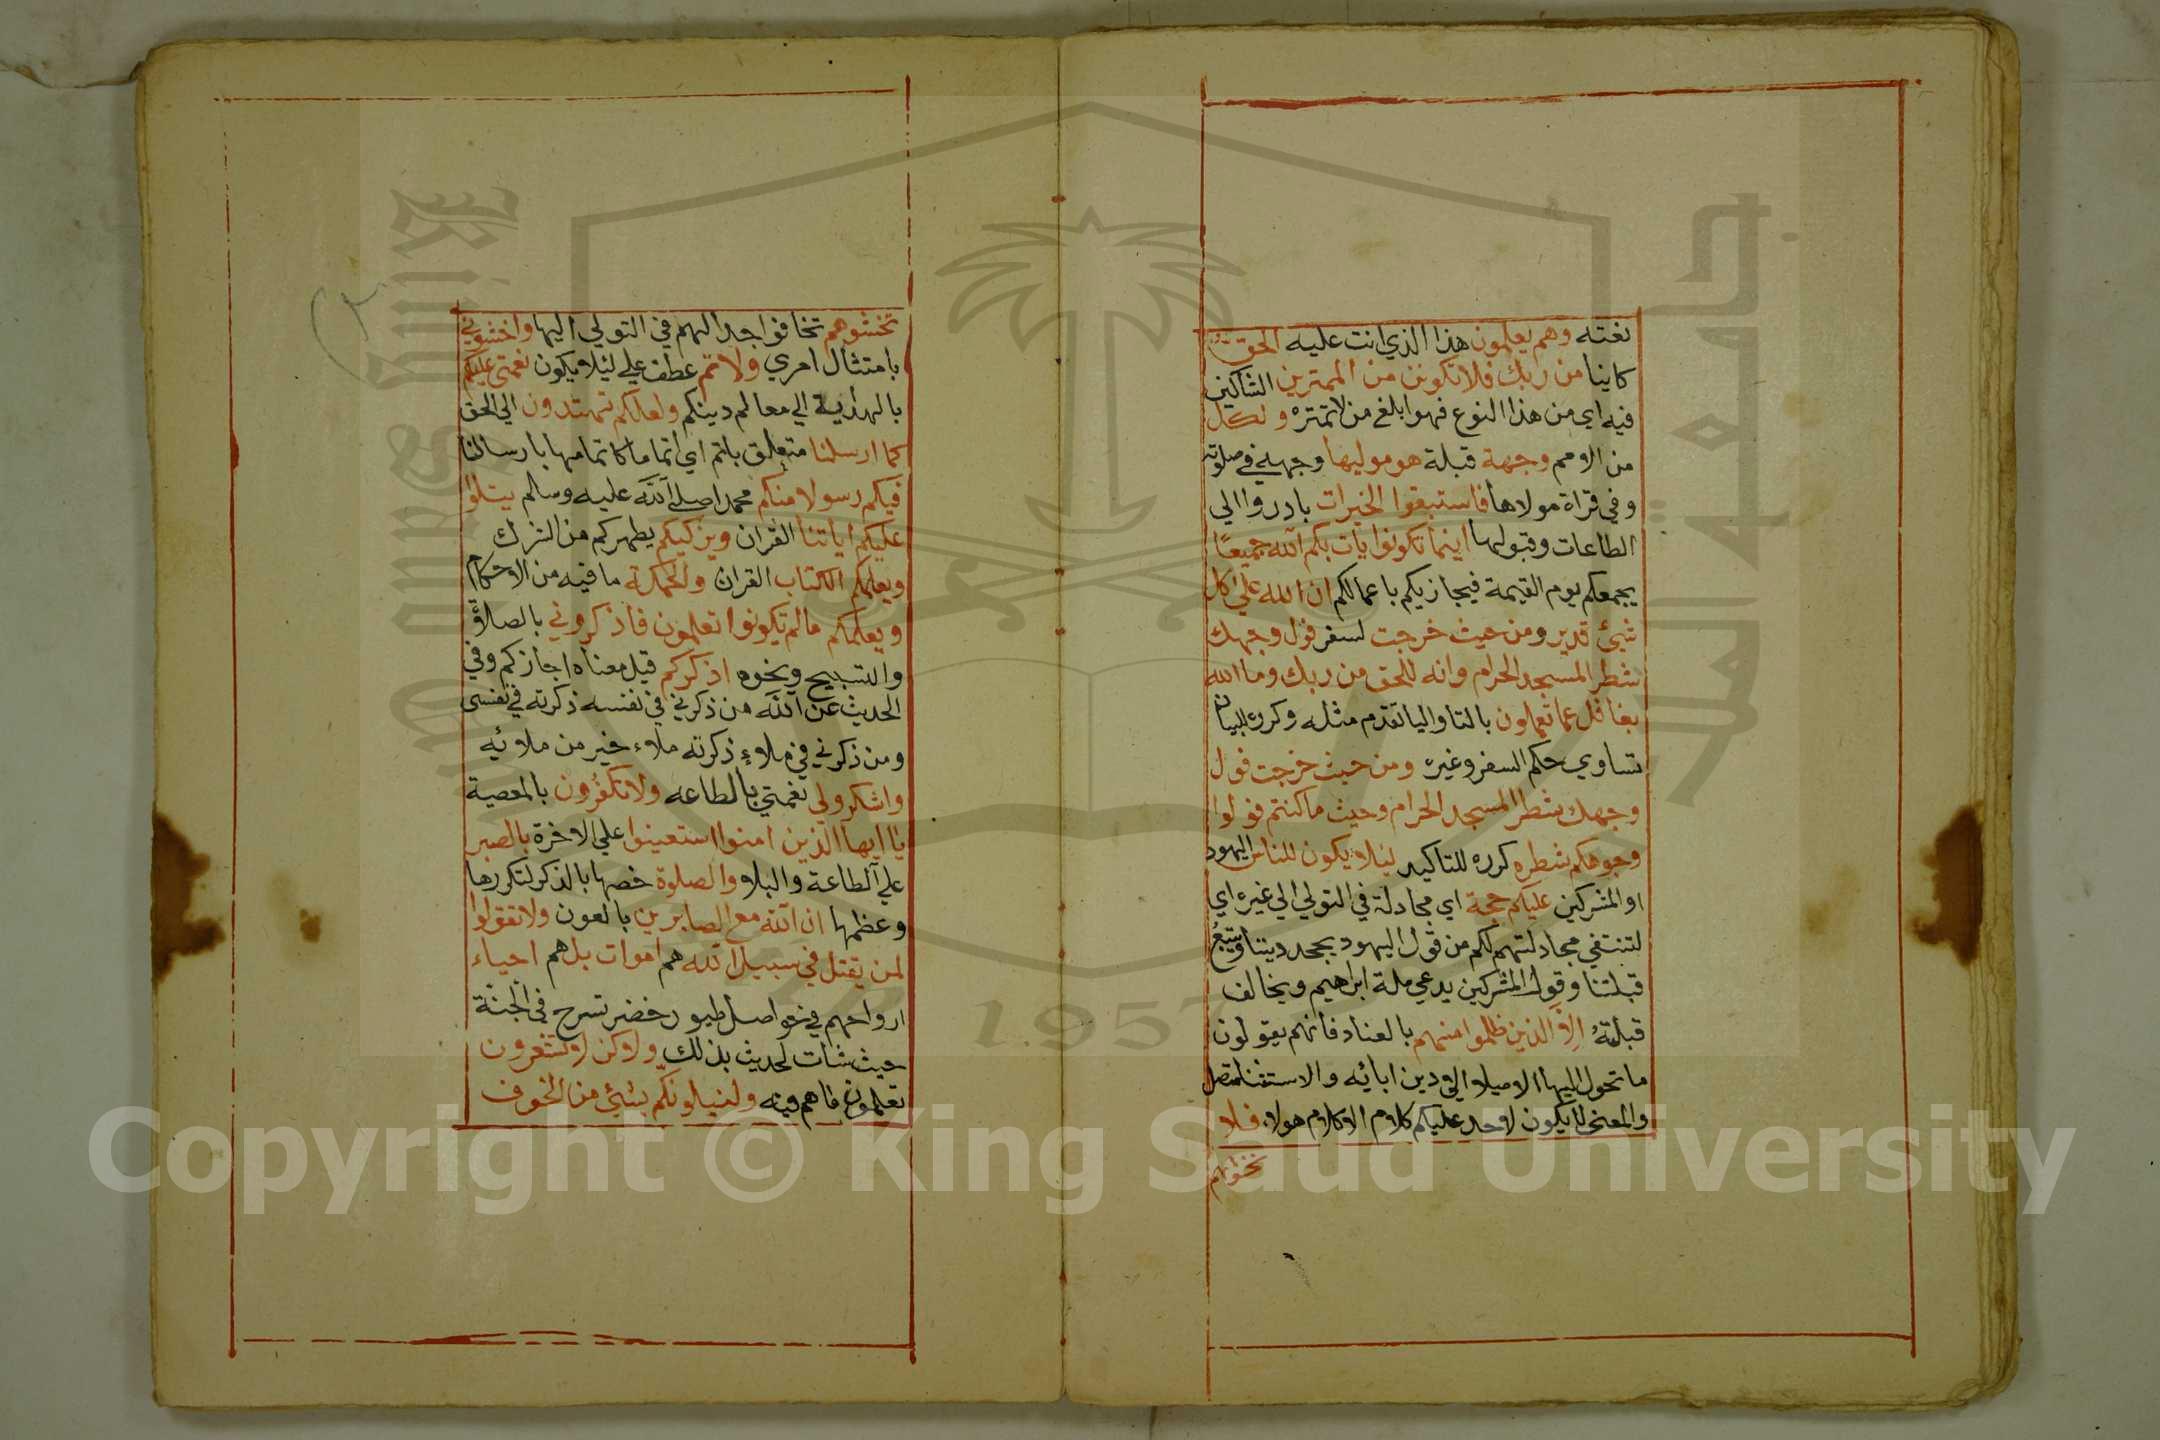 نعته وهم يعلمون هذا الذي انت عليه الحق
كاينا من ربك فلا تكونن من الممترين الشاكين
فيه اي من هذا النوع فهو ابلغ من لا تمتره ولكل
من الامم وجهة قبلة هو موليها وجهه في صلوته
وفي قراة مولاها فاستبقوا الخيرات بادروا الي
الطاعات وقبولها اينما تكونوا يات بكم الله جميعا
يجمعكم يوم القيمة فيجازيكم باعمالكم ان الله علي كل
شيئ قدير ومن حيث خرجت لسفر فول وجهك
شطر المسجد الحرام وانه للحق من ربك وما الله
بغافل عما تعملون بالتا واليا تقدم مثله وكرره لبيان
تساوي حكم السفر وغيره ومن حيث خرجت فول
وجهك شطر المسجد الحرام وحيث ما كنتم فولوا
وجوهكم شطره كرره للتاكيد ليلا يكون للناس اليهود
او المشركين عليكم حجة اي مجادلة في التولي الي غيره اي
لتنتفي مجادلتهم لكم من قول اليهود يجحد ديننا ويتبع
قبلتنا وقول المشركين يدعي ملة ابراهيم ويخالف
قبلته الا الذين ظلموا منهم بالعناد فانهم يقولون
ما تحول اليها الا ميلا الي دين ابائه والاستثنا متصل
والمعني لا يكون لاحد عليكم كلام الا كلام هولاء فلا
تخشوهم
تخشوهم تخافوا جدالهم في التولي اليها واخشوني
بامتثال امري ولاتم عطف علي ليلا يكون نعمتي عليكم
بالهداية الي معالم دينكم ولعلكم تهتدون الي الحق
كما ارسلنا متعلق باتم اي اتماما كاتمامها بارسالنا
فيكم رسولا منكم محمدا صلي الله عليه وسلم يتلوا
عليكم اياتنا القران ويزكيكم يطهركم من الشرك
ويعلمكم الكتاب القران والحكمة ما فيه من الاحكام
ويعلمكم ما لم تكونوا تعلمون فاذكروني بالصلاة
والتسبيح ونحوه اذكركم قيل معناه اجازكم وفي
الحديث عن الله من ذكرني في نفسه ذكرته في نفسي
ومن ذكرني في ملاء ذكرته ملاء خير من ملائه
واشكرولي نعمتي بالطاعه ولا تكفرون بالمعصية
يا ايها الذين امنوا استعينوا علي الاخرة بالصبر
علي الطاعة والبلاو والصلوة خصها بالذكر لتكررها
وعظمها ان الله مع الصابرين بالعون ولا تقولوا
لمن يقتل في سبيل الله هم اموات بل هم احياء
ارواحهم في حواصل طيور خضر تسرح في الجنة
حيث شات لحديث بذلك ولاكن لا تشعرون
تعلمون ما هم فيه ولنبلونكم بشيئ من الخوف
(٢
1957
Copyright © King Saud University